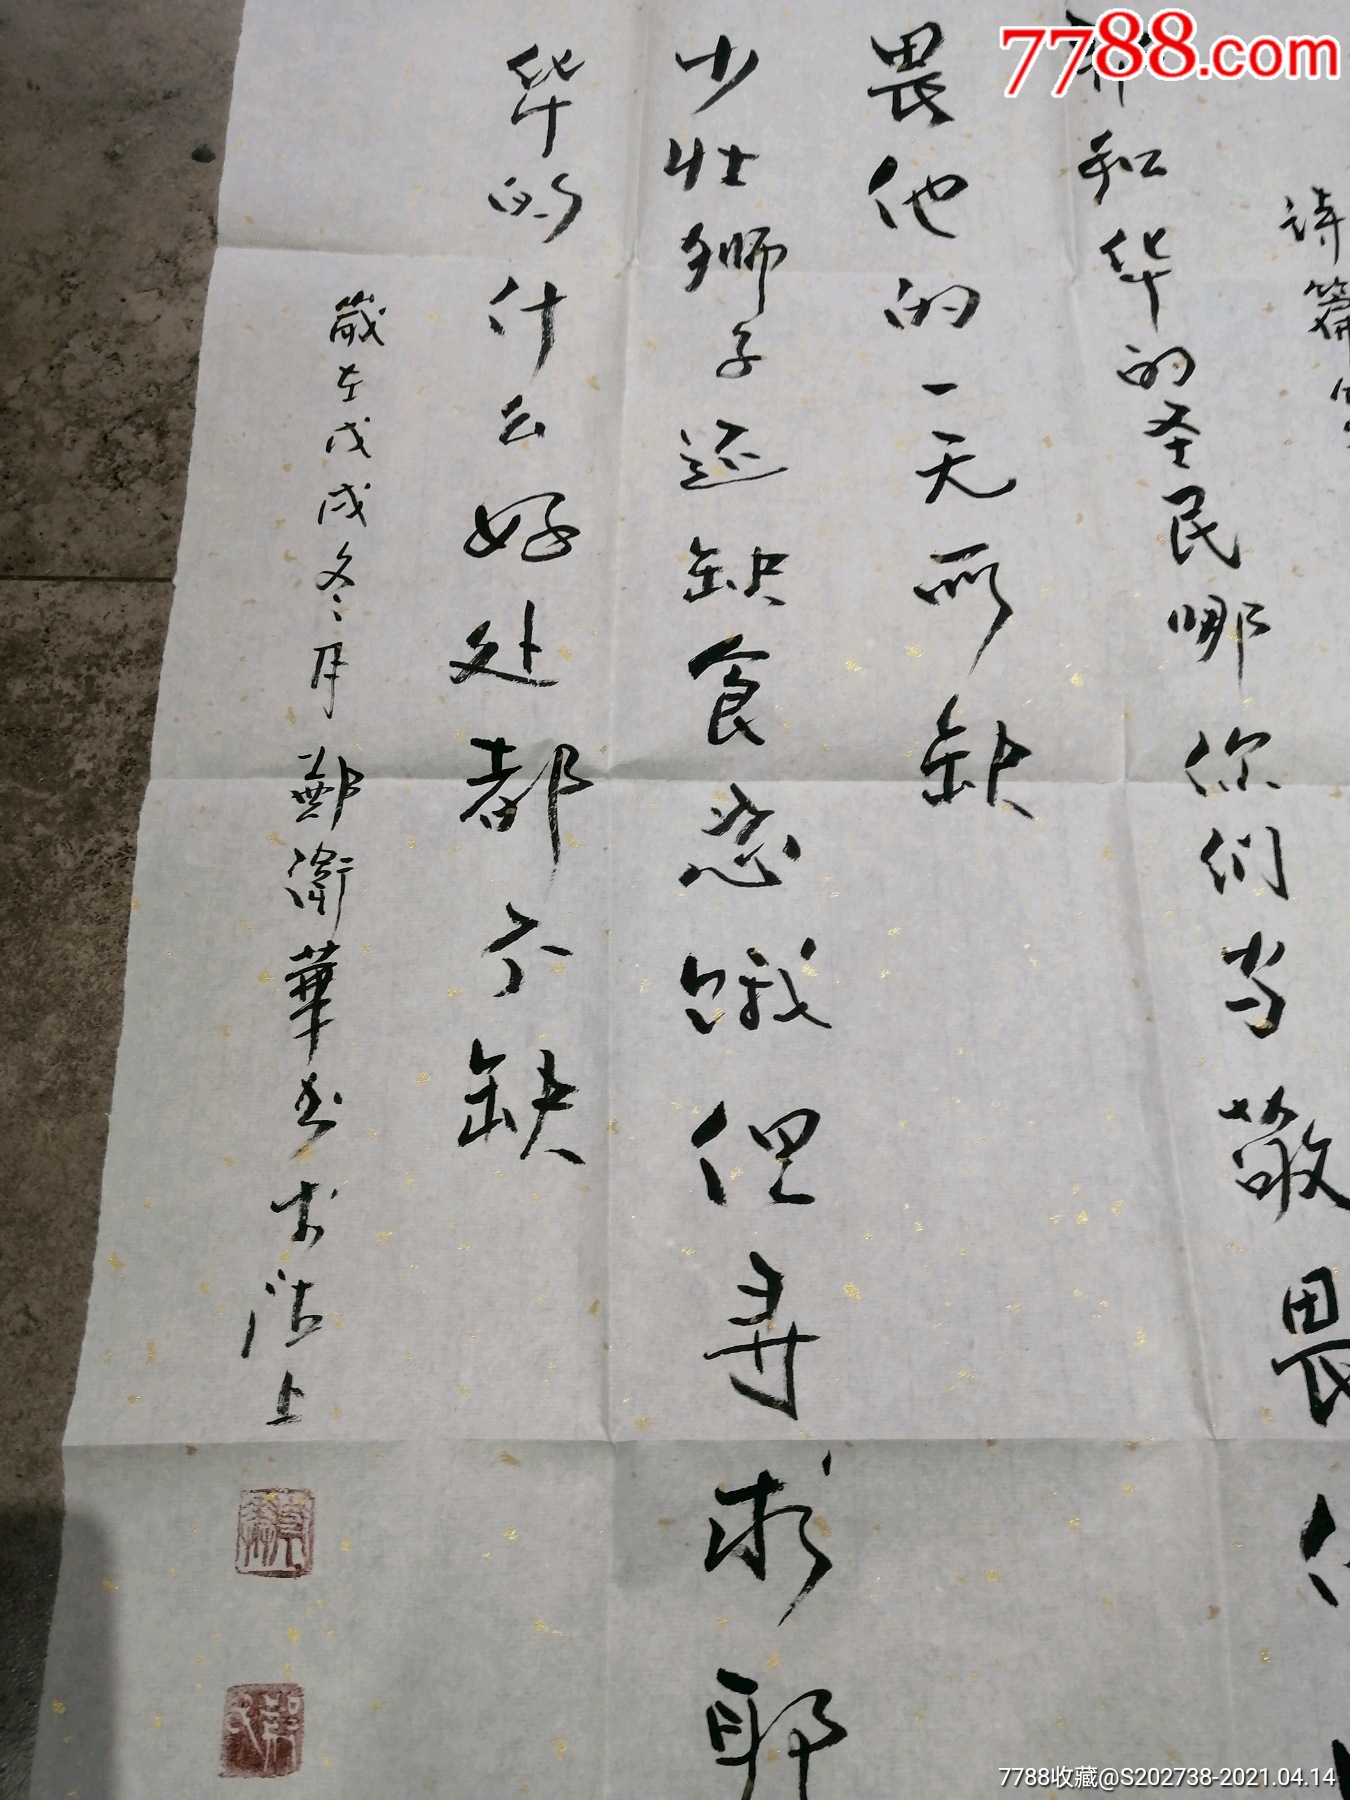 7788.com
诗篇
和华的圣民哪你们当敬畏
畏他的一无所缺
少壮狮子还缺食忍饿但寻求耶
华的什么好处都不缺
歲在戊戌冬月鄭衛華书於沽上
7788收藏@S202738-2021.04.14